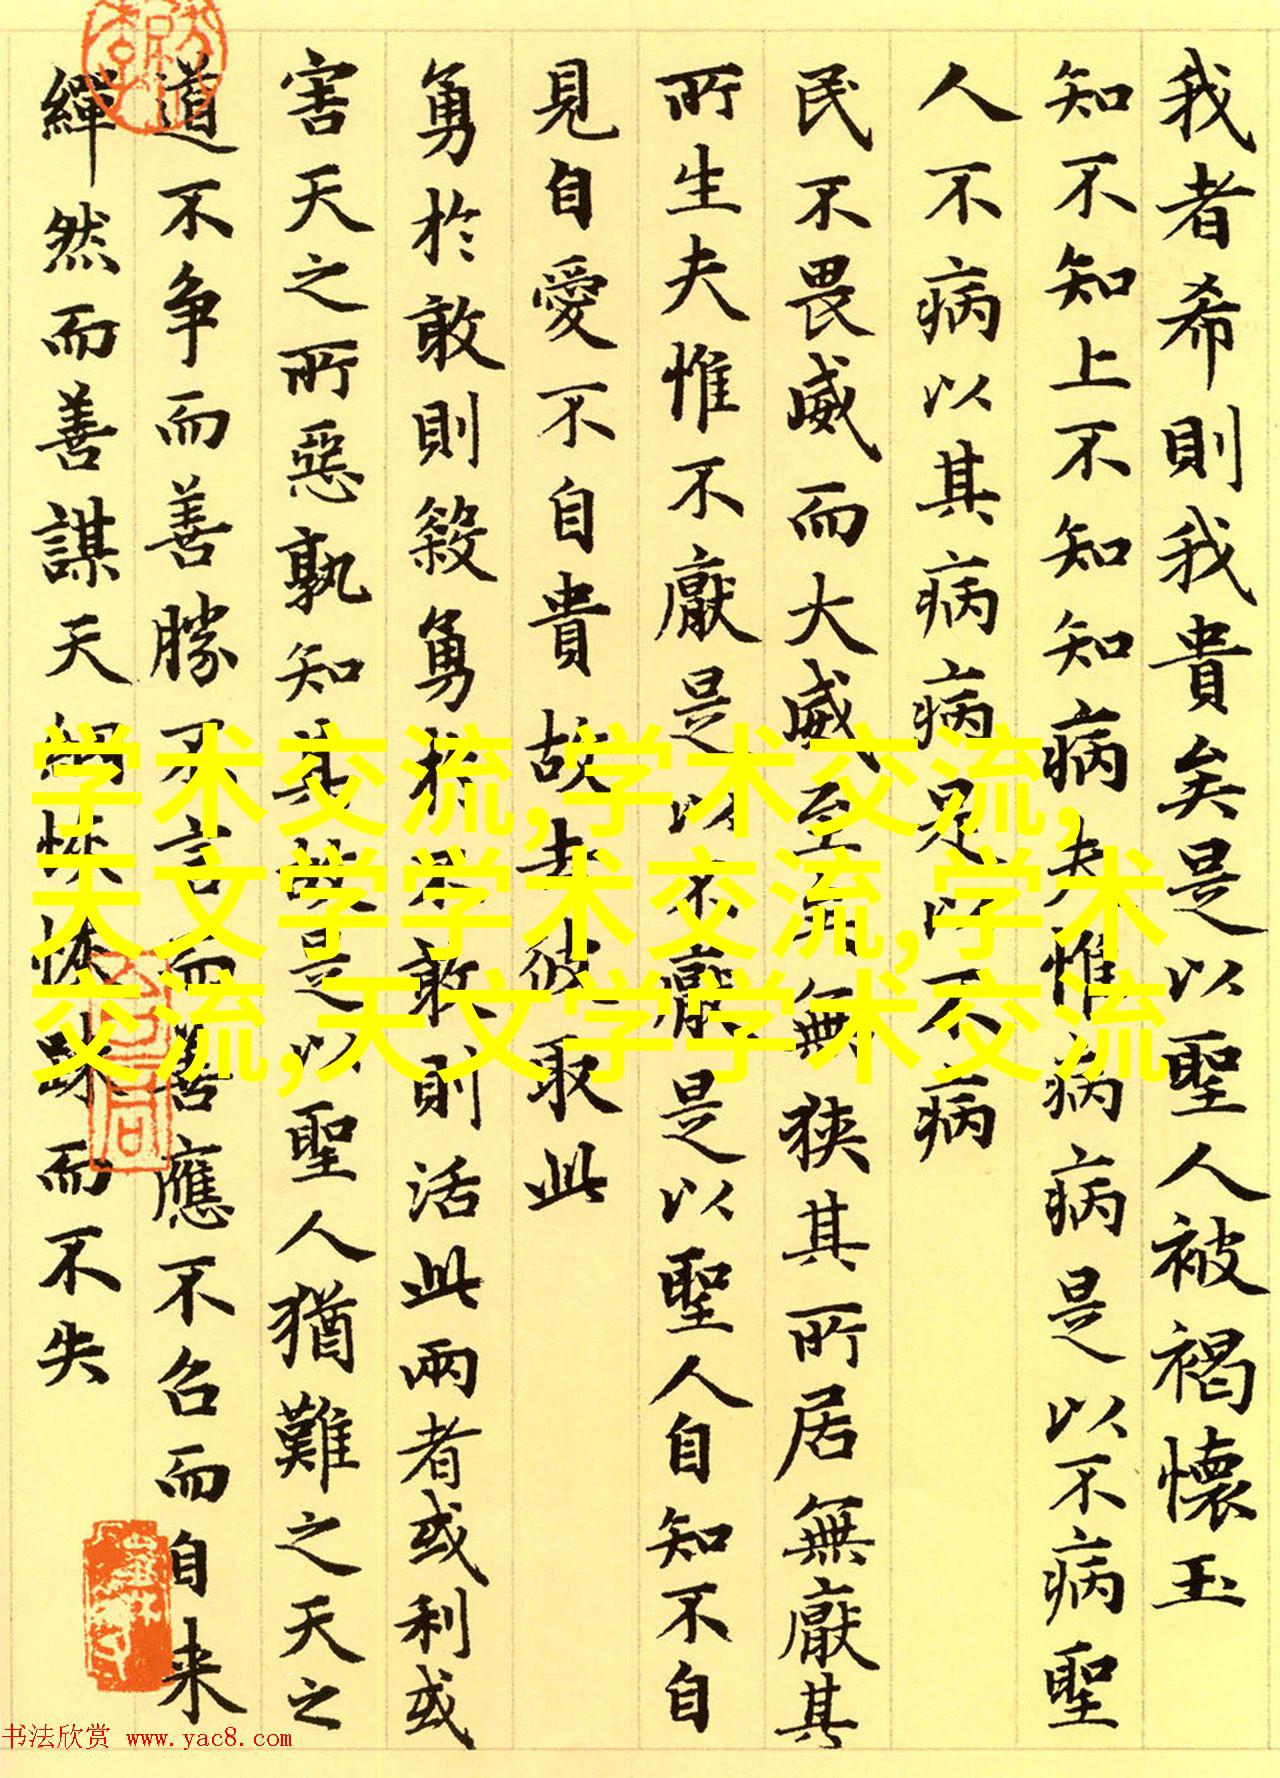 我者希則我貴矣是以聖人被褐懷玉
知不知上不知知病夫惟病病是以不病聖
人不病以其病病是以不病
民不畏威而大威至矣無狹其所居無厭其
所生夫惟不厭是以不厭是以聖人自知不自
見自愛不自貴故去彼取此
勇於敢則殺勇於不敢則活此兩者或利或
害天之所惡孰知其故是以聖人猶難之天之
道不争而善勝不言而善應不召而自来
繟然而善謀天網恢恢踈而不失
学术交流,学术交流,
天文学学术交流,学术
交流,天文学学术交流
书法欣赏 www.yac8.com